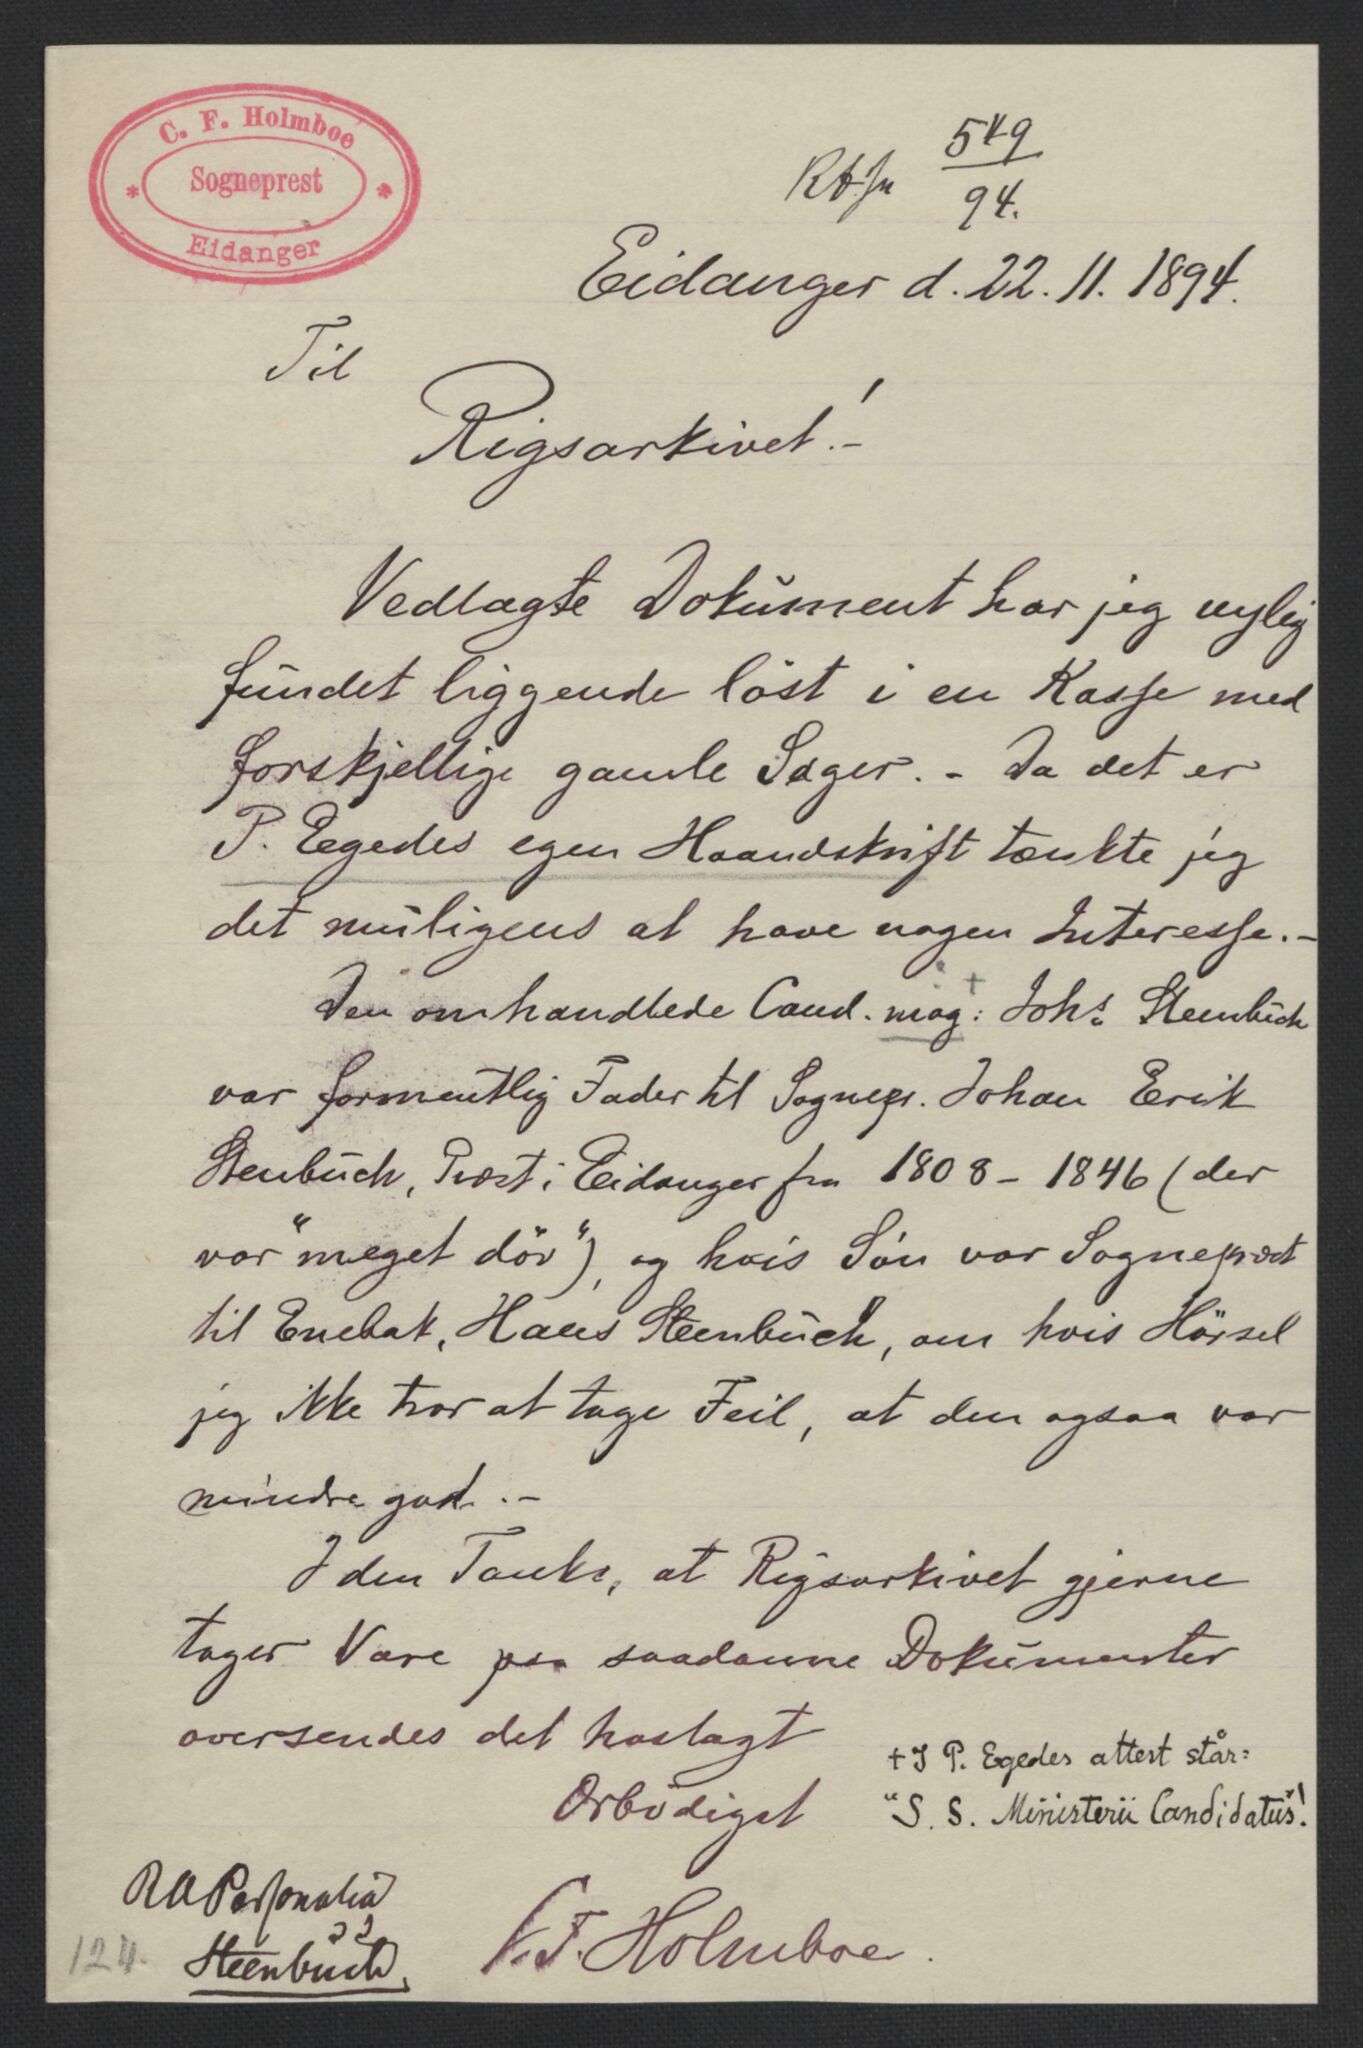 C. F. Holmboe
Sogneprest
Eidanger
549
94.
Eidanger d. 22. 11. 1894.
Til
Rigsarkivet! –
Vedlagte Dokument har jeg nylig
fundet liggende löst i en Kasse med
forskjellige gamle Sager. – Da det er
P. Egedes egen Haandskrift tænkte jeg
det muligens at have nogen Interesse. –
Den omhandlede Cand. mag: + Johs. Steenbuch
var formentlig Fader til Sognepr. Johan Erik
Steenbuch, Præst i Eidanger fra 1808 – 1846 (der
var "meget döv"), og hvis Sön var Sogneprest
til Enebak, Hans Steenbuch, om hvis Hörsel
jeg ikke tror at tage Feil, at den ogsaa var
mindre god. –
I den Tanke, at Rigsarkivet gjerne
tager Vare paa saadanne Dokumenter
oversendes det hoslagt
Örbödigst
+ I P. Egedes attest står:
"S. S. Ministerii Candidatus"!
C. F. Holmboe.
RA Personalia
Steenbuch.
124.